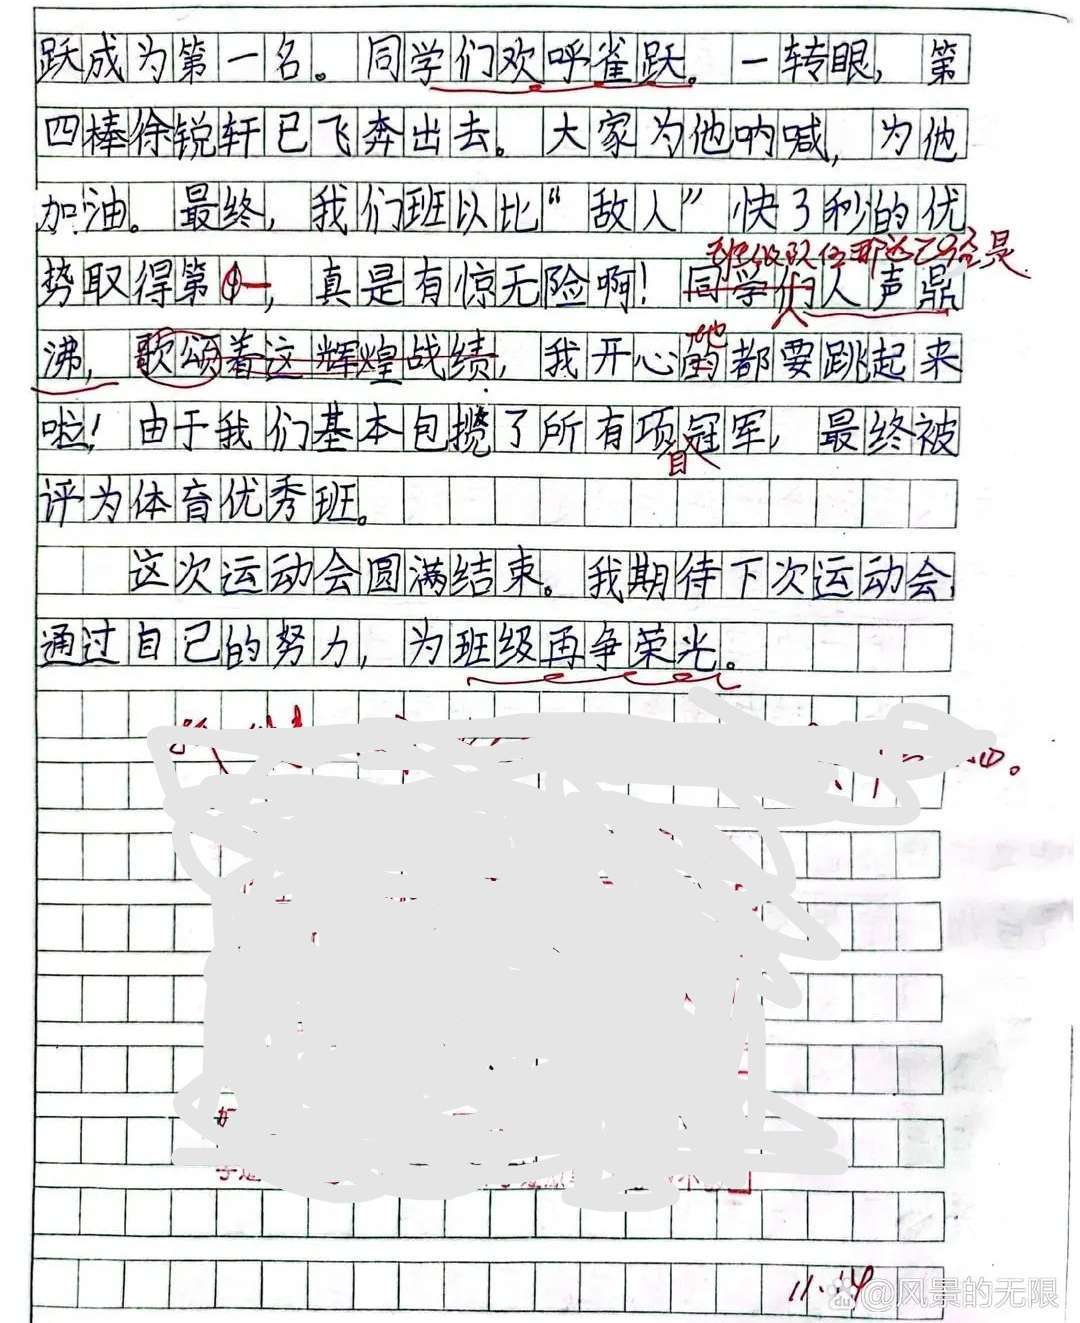 跃成为第一名。同学们欢呼雀跃。一转眼，第
四棒徐锐轩已飞奔出去。大家为他呐喊，为他
加油。最终，我们班以比“敌人”快了秒的优
班级队伍那边已经是
势取得第一，真是有惊无险啊！同学们人声鼎
沸，歌颂着这辉煌战绩，我开心的都要跳起来
地
啦！由于我们基本包揽了所有项冠军，最终被
目
评为体育优秀班。
这次运动会圆满结束。我期待下次运动会，
通过自己的努力，为班级再争荣光。
@风景的无限